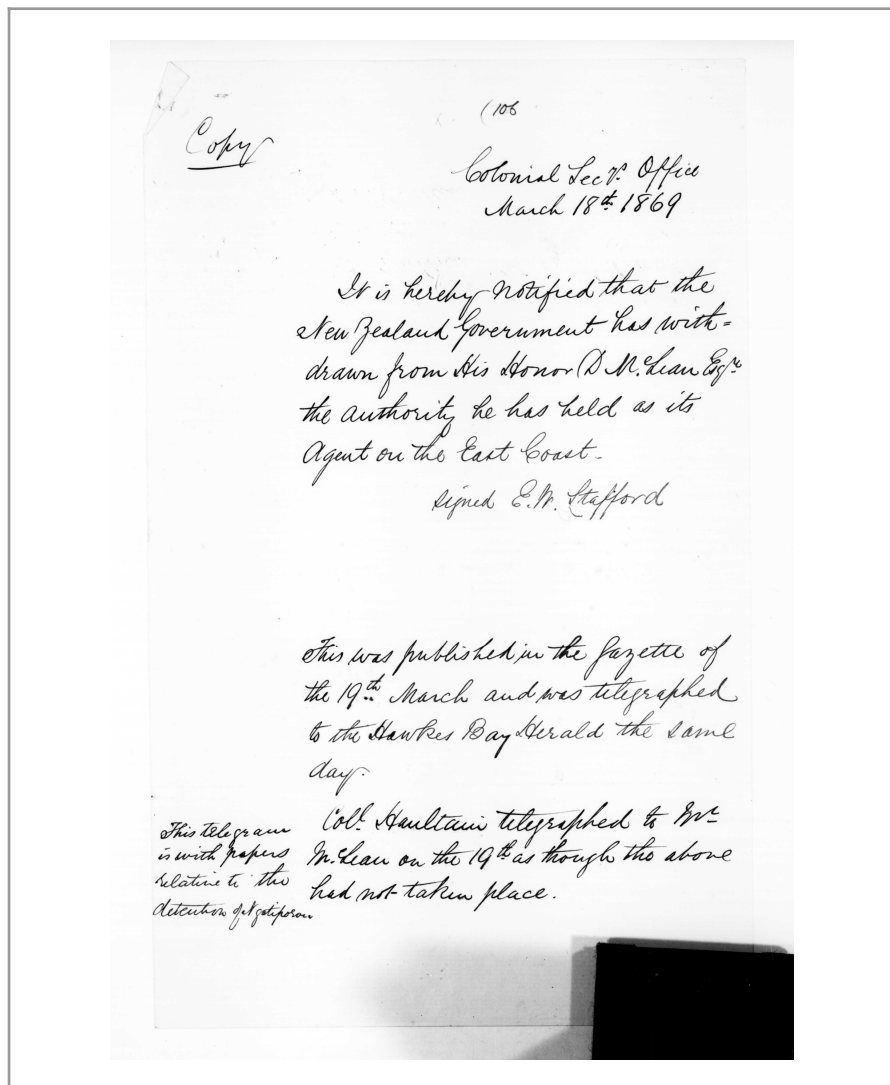 (106
Copy
Colonial Secy. Office
March 18th 1869
It is hereby notified that the
New Zealand Government has with=
drawn from His Honor D McLean Esqre
the authority he has held as its
Agent on the East Coast.
signed E.W. Stafford
This was published in the Gazette of
the 19th March and was telegraphed
to the Hawkes Bay Herald the same
day.
Coll. Haultain telegraphed to Mr
McLean on the 19th as though the above
had not taken place.
This telegram
is with papers
relative to the
detention of Ngatiporou